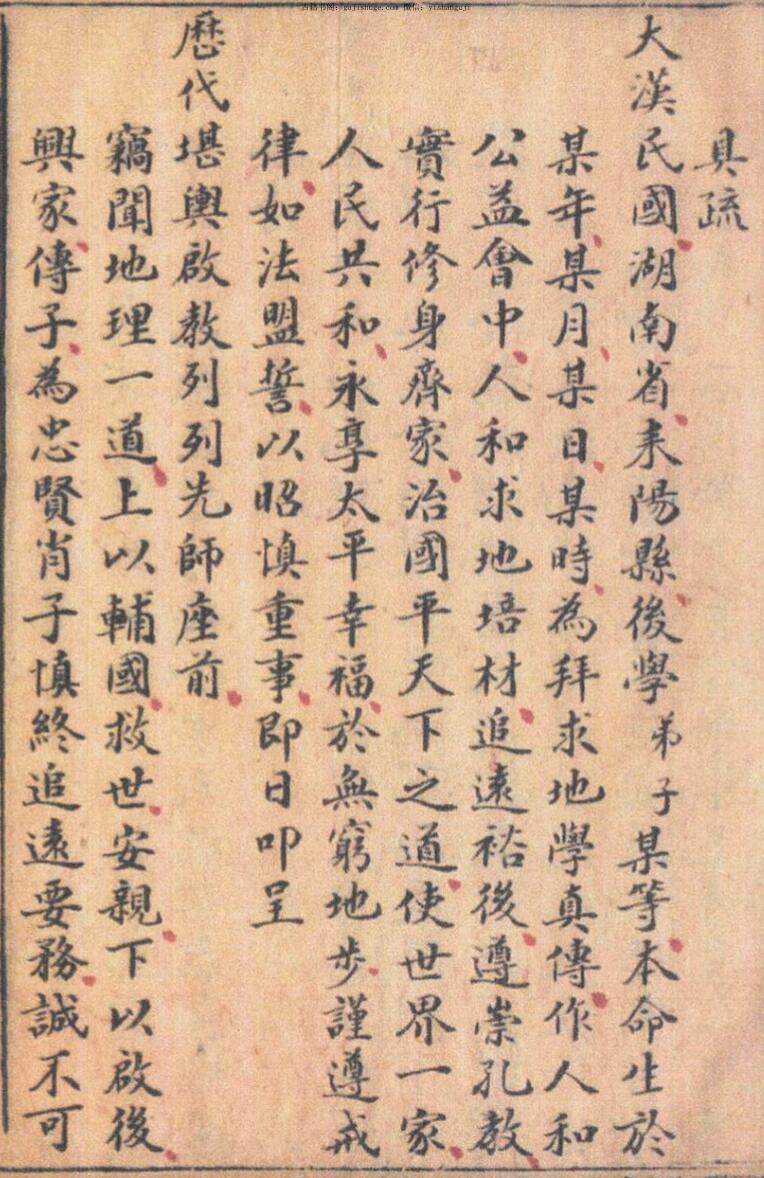 古籍书阁：gujishuge.com 微信：yishanguji
具疏
大漢民國湖南省耒陽縣後學弟子某等本命生於
某年某月某日某時為拜求地學真傳作人和
公益會中人和求地培材追遠裕後遵崇孔教
實行修身齊家治國平天下之道使世界一家
人民共和永享太平幸福於無窮地步謹遵戒
律如法盟誓以昭慎重事即日叩呈
歷代堪輿啟教列列先師座前
竊聞地理一道上以輔國救世安親下以啟後
興家傳子為忠賢肖子慎終追遠要務誠不可